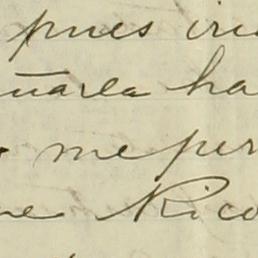 pues iri
ñarla ha
me per
ne Rico